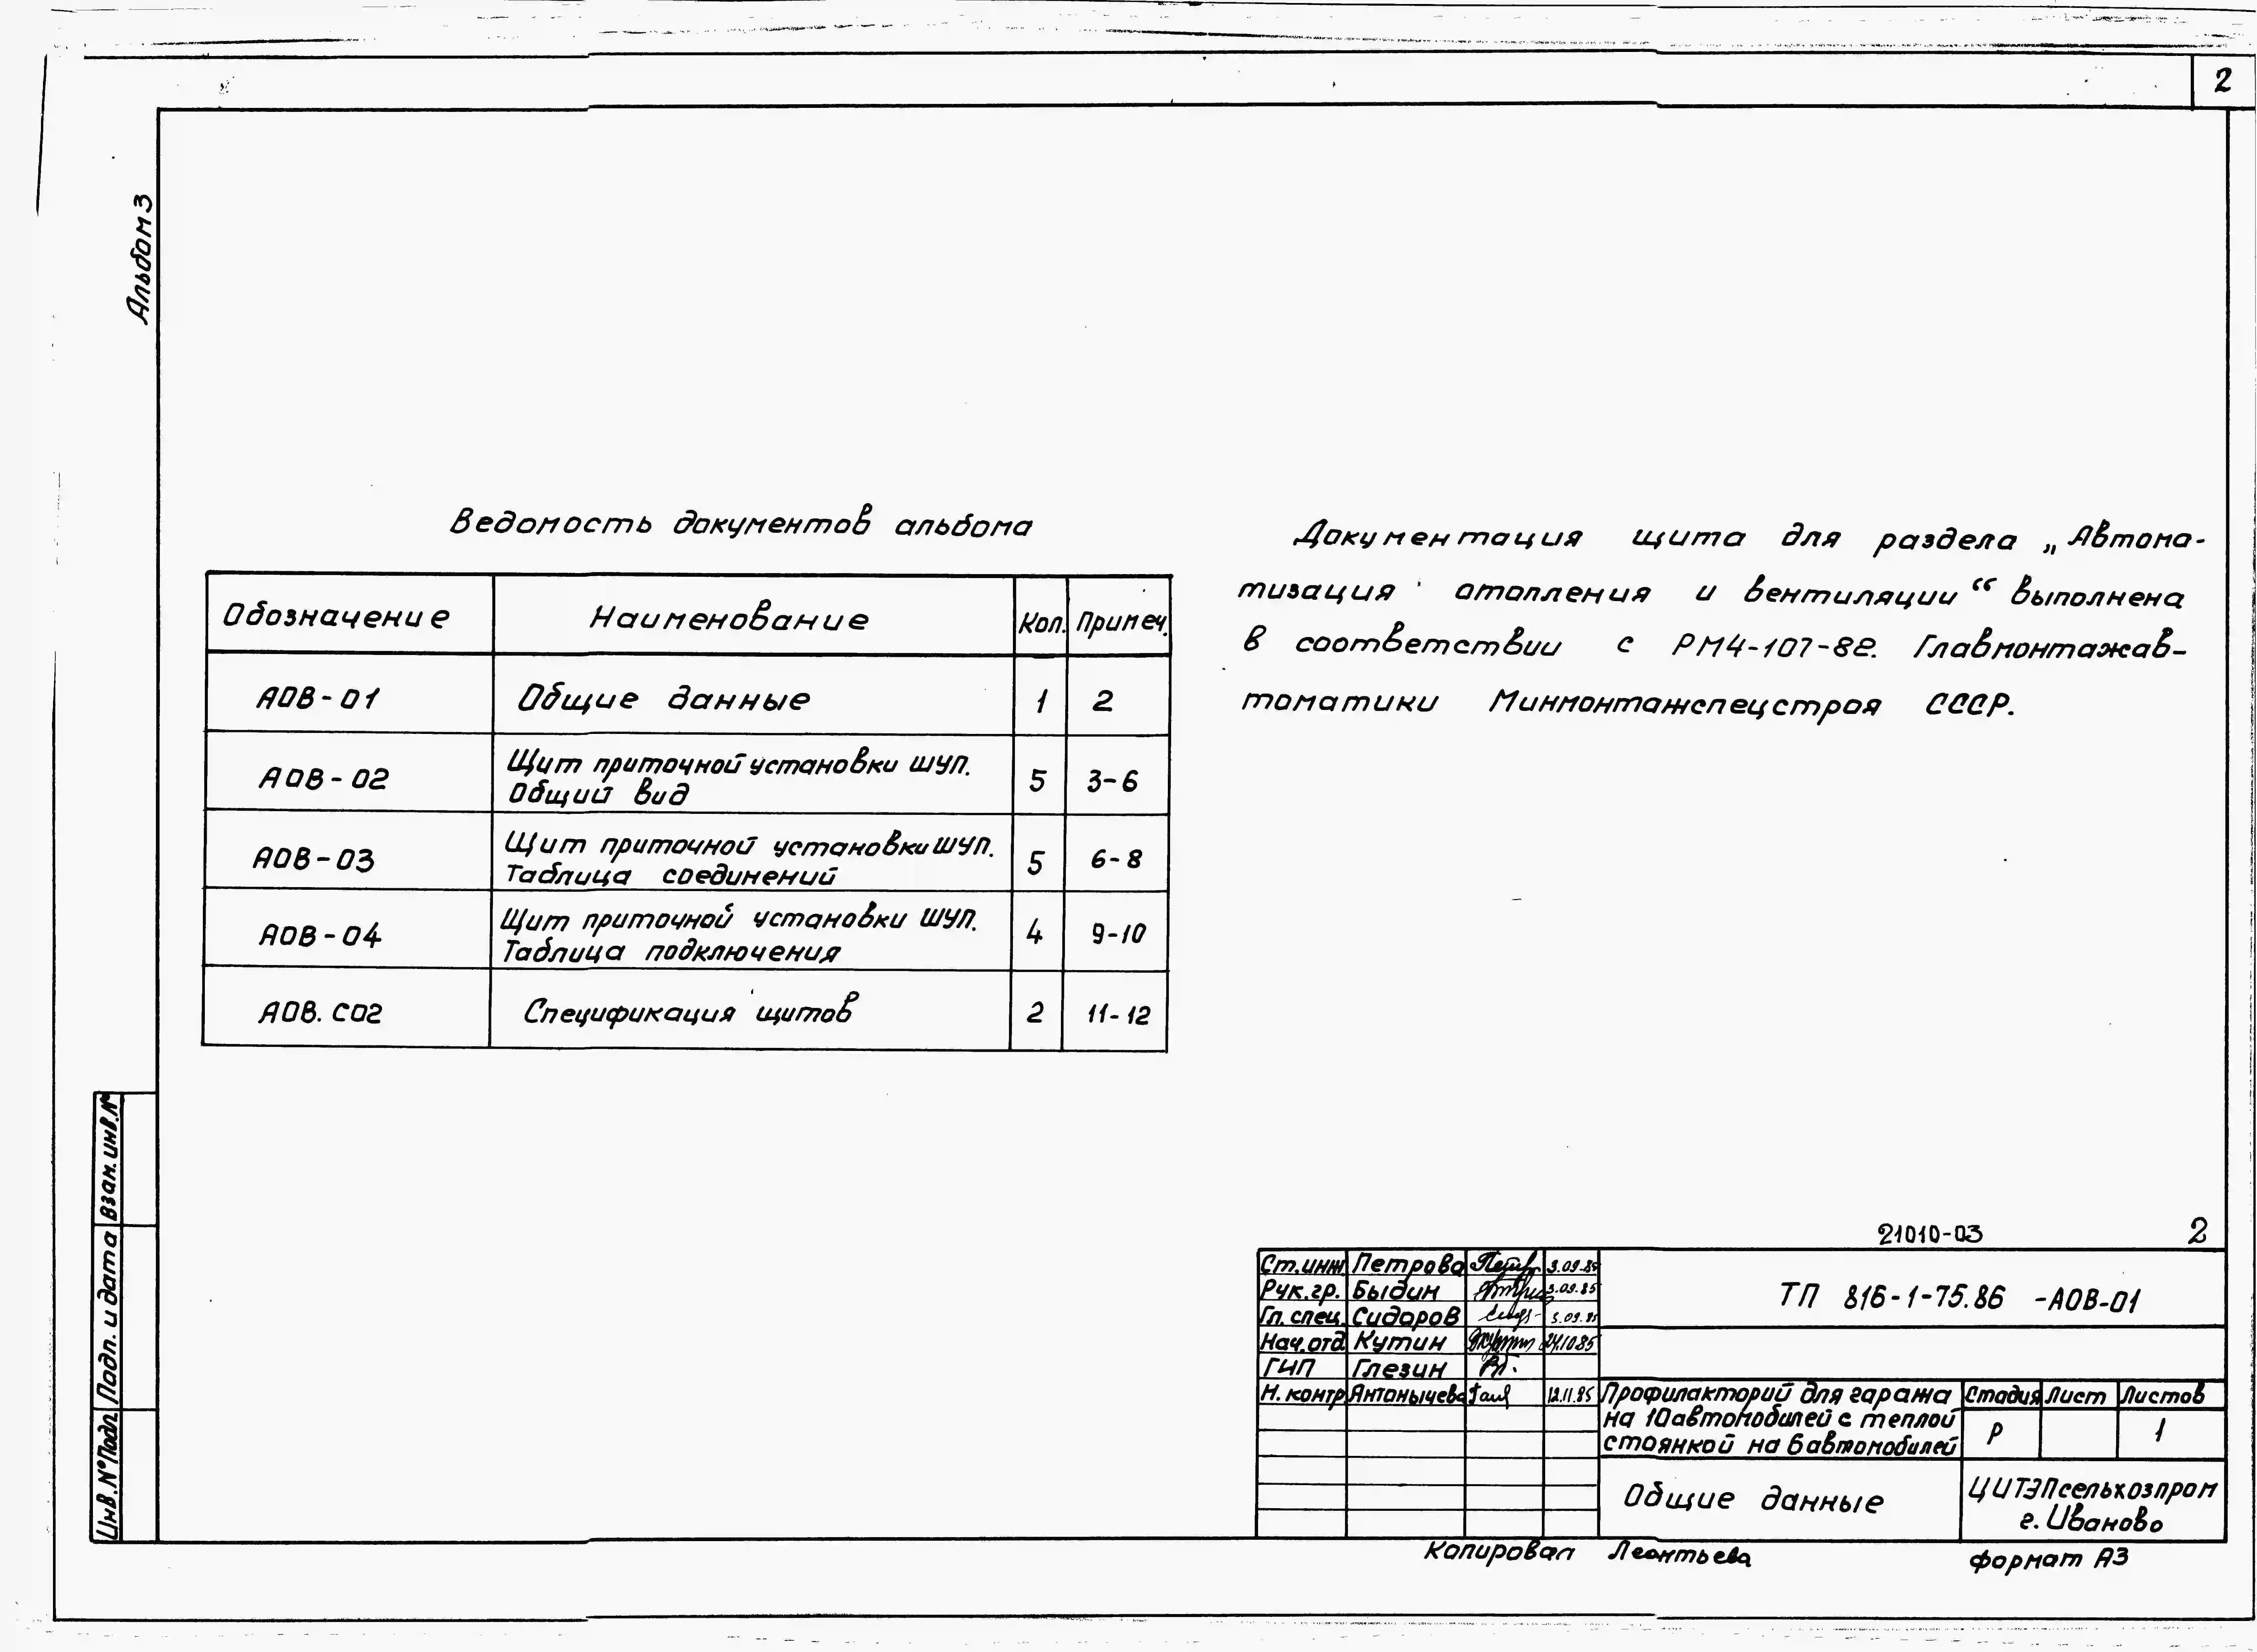 2
Альбом 3
Ведомость документов альбома
Обозначение Наименование Кол. Примеч.
АОВ-01 Общие данные 1 2
АОВ-02 Щит приточной установки ШУП. Общий вид 5 3-6
АОВ-03 Щит приточной установки ШУП. Таблица соединений 5 6-8
АОВ-04 Щит приточной установки ШУП. Таблица подключения 4 9-10
АОВ.СО2 Спецификация щитов 2 11-12
Документация щита для раздела „Автома-
тизация отопления и вентиляции“ выполнена
в соответствии с РМ4-107-82. Главмонтажав-
томатики Минмонтажспецстроя СССР.
Взам. инв. №
Подп. и дата
Инв. № Подл.
21010-03 2
Ст.инж. Петрова 3.09.85
Рук.гр. Быдин 3.09.85
Гл. спец. Сидоров 3.09.85
Нач.отд. Кутин 24.10.85
ГИП Глезин
Н. контр. Антонычева 12.11.85
ТП 816-1-75.86 -АОВ-01
Профилакторий для гаража
на 10 автомобилей с теплой
стоянкой на 6 автомобилей
Стадия Лист Листов
Р 1
Общие данные
ЦИТЭПсельхозпром
г. Иваново
Копировал Леонтьева формат А3